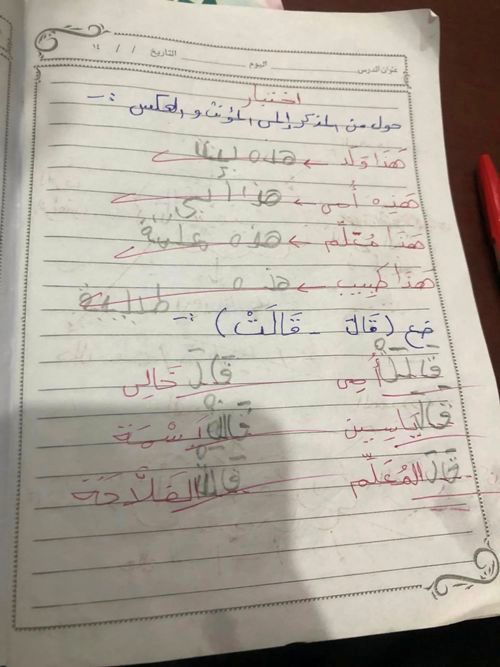 عنوان الدرس اليوم التاريخ / / ١٤
اختبار
حول من المذكر إلى المؤنث و العكس :-
هَذَا وَلَد ← هذه بنت
هَذِه أُمي ← هذا أبي
هَذَا مُعَلِّم ← هذه
هَذَا طَبِيب ← هذه
ضع (قَالَ - قَالَتْ) :-
أُمِي قَالَ خَالِي
قَالَ يَاسِين بَسْمَة
قَالَ المُعَلِّم الفَلاَّحَة